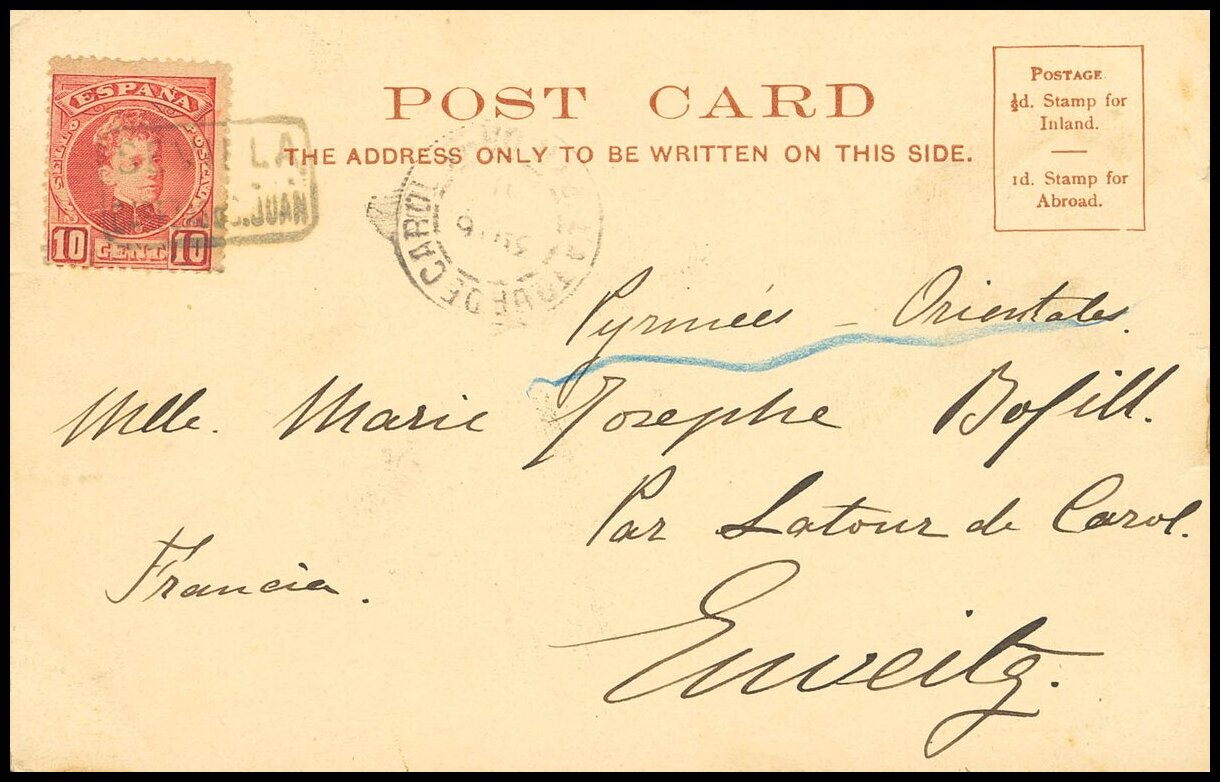 POST CARD
THE ADDRESS ONLY TO BE WRITTEN ON THIS SIDE.
POSTAGE
½d. Stamp for
Inland.
1d. Stamp for
Abroad.
ESPAÑA
SELLO POSTAL
10 CENTS 10
LA
S.JUAN
TOUR DE CAROL
Pyrnées - Orientales.
Mlle. Marie Josephe Bofill.
Par Latour de Carol.
Francia.
Enveitg.